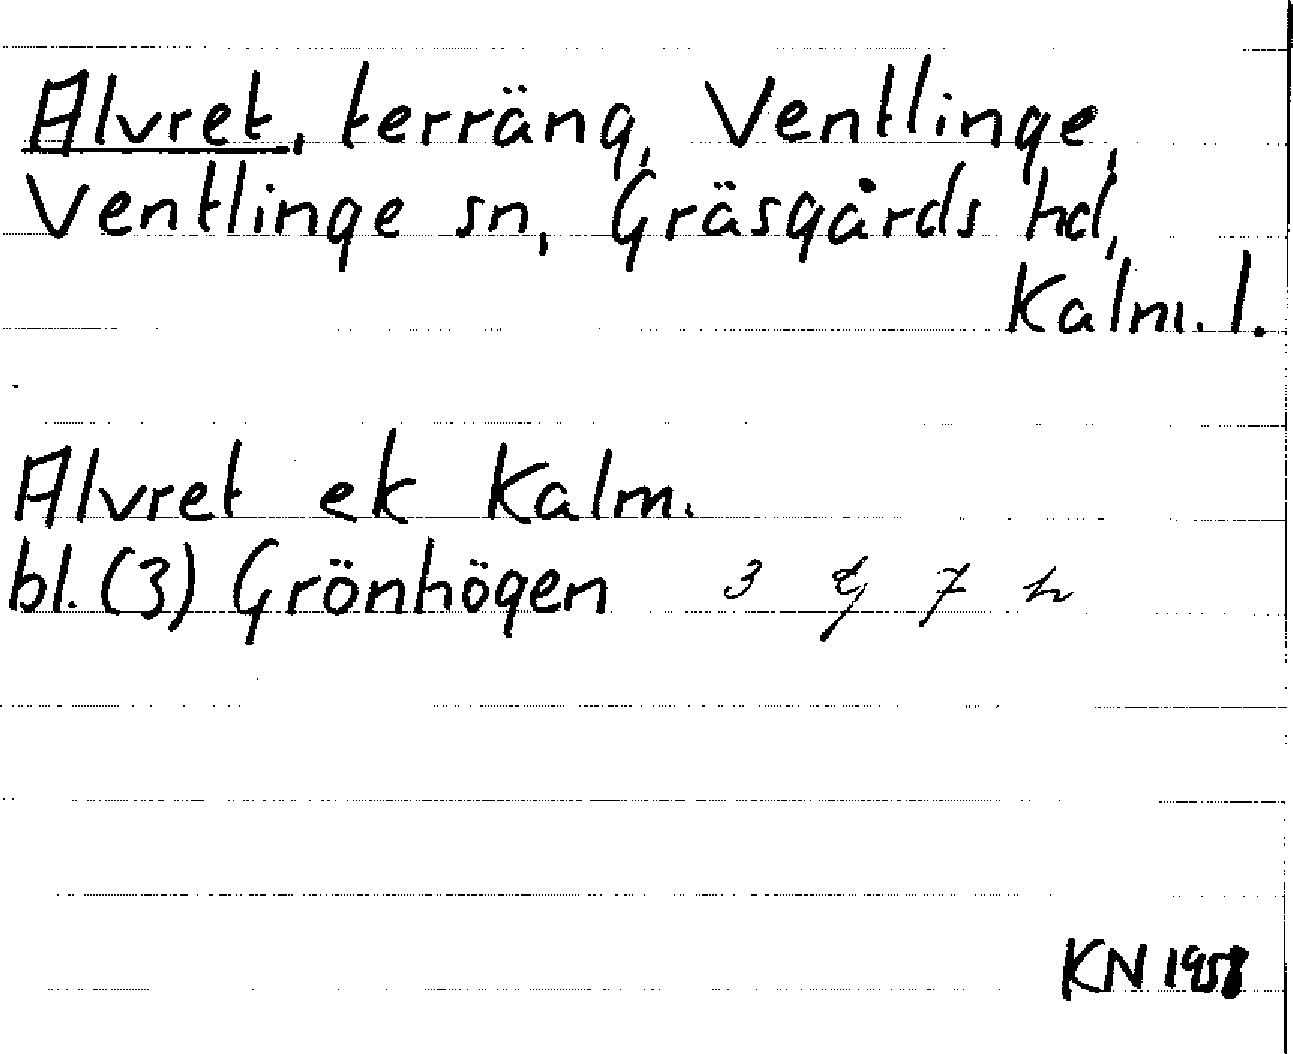 Alvret, terräng, Ventlinge,
Ventlinge sn, Gräsgårds hd,
Kalm. l.
Alvret ek Kalm.
bl. (3) Grönhögen 3 g 7 h
KN 1958